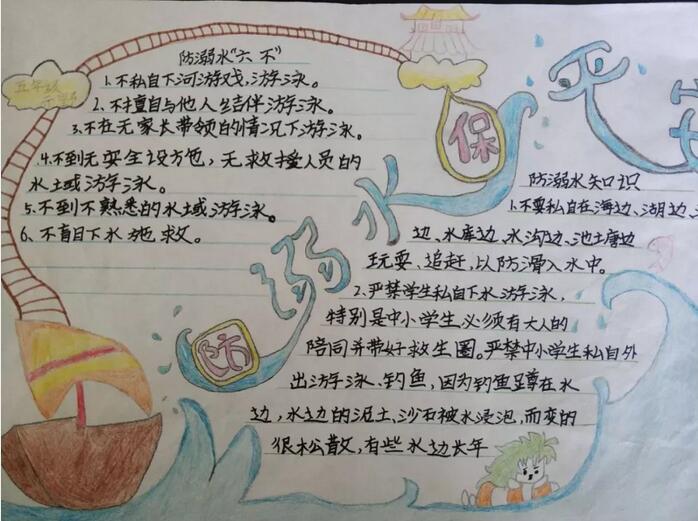 防溺水“六不”
1.不私自下河游戏,游泳。
2.不擅自与他人结伴游泳。
3.不在无家长带领的情况下游泳。
4.不到无安全设施,无救援人员的
水域游泳。
5.不到不熟悉的水域游泳。
6.不盲目下水施救。
五年级
防溺水
保
平
防溺水知识
1.不要私自在海边、湖边、
边、水库边、水沟边、池塘边
玩耍、追赶,以防滑入水中。
2.严禁学生私自下水游泳,
特别是中小学生必须有大人的
陪同并带好救生圈。严禁中小学生私自外
出游泳、钓鱼,因为钓鱼蹲在水
边,水边的泥土、沙石被水浸泡,而变的
很松散,有些水边长年